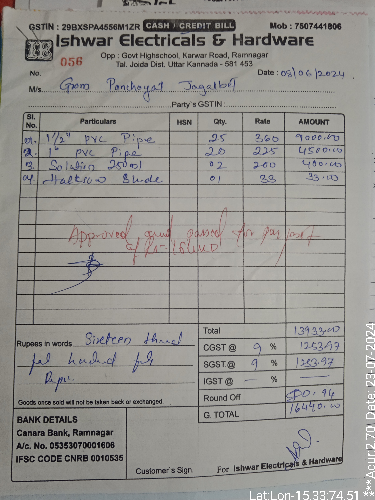 GSTIN : 29BXSPA4556M1ZR CASH / CREDIT BILL Mob : 7507441806
Ishwar Electricals & Hardware
Opp : Govt Highschool, Karwar Road, Ramnagar
Tal. Joida Dist. Uttar Kannada - 581 453
No. 056 Date : 03/06/2024
M/s. Gram Panchayat Jagalbet
Party's GSTIN :
Sl. No. Particulars HSN Qty. Rate AMOUNT
01. 1 1/2" PVC Pipe 25 360 9000.00
2. 1" PVC Pipe 20 225 4500.00
3 Solution 250ml 02 200 400.00
04 Blade 01 33 33.00
Approved and passed for payment
of Rs-
Total 13933.00
Rupees in words Sixteen
CGST @ 9 % 1253.97
SGST @ 9 % 1253.97
IGST @ - %
Round Off
G. TOTAL 16440.00
Goods once sold will not be taken back or exchanged.
BANK DETAILS
Canara Bank, Ramnagar
A/c. No. 05353070001606
IFSC CODE CNRB 0010535
Customer's Sign For Ishwar Electricals & Hardware
Lat:Lon-15.33:74.51
***Acur:2.70, Date: 23-07-2024